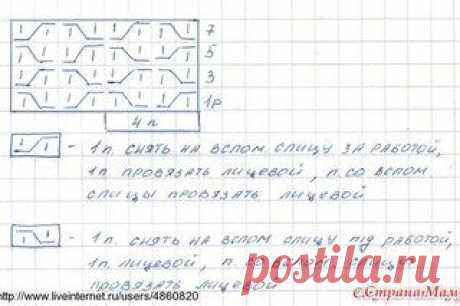 7
5
3
1р
4 п
- 1 п. снять на вспом спицу за работой,
1 п провязать лицевой, п. со вспом
спицы провязать лицевой
- 1 п. снять на вспом спицу під работой,
1 п. лицевой, п. со вспом спицы
провязать лицевой
posti-la.ru
http://www.liveinternet.ru/users/4860820
©СтранаМам